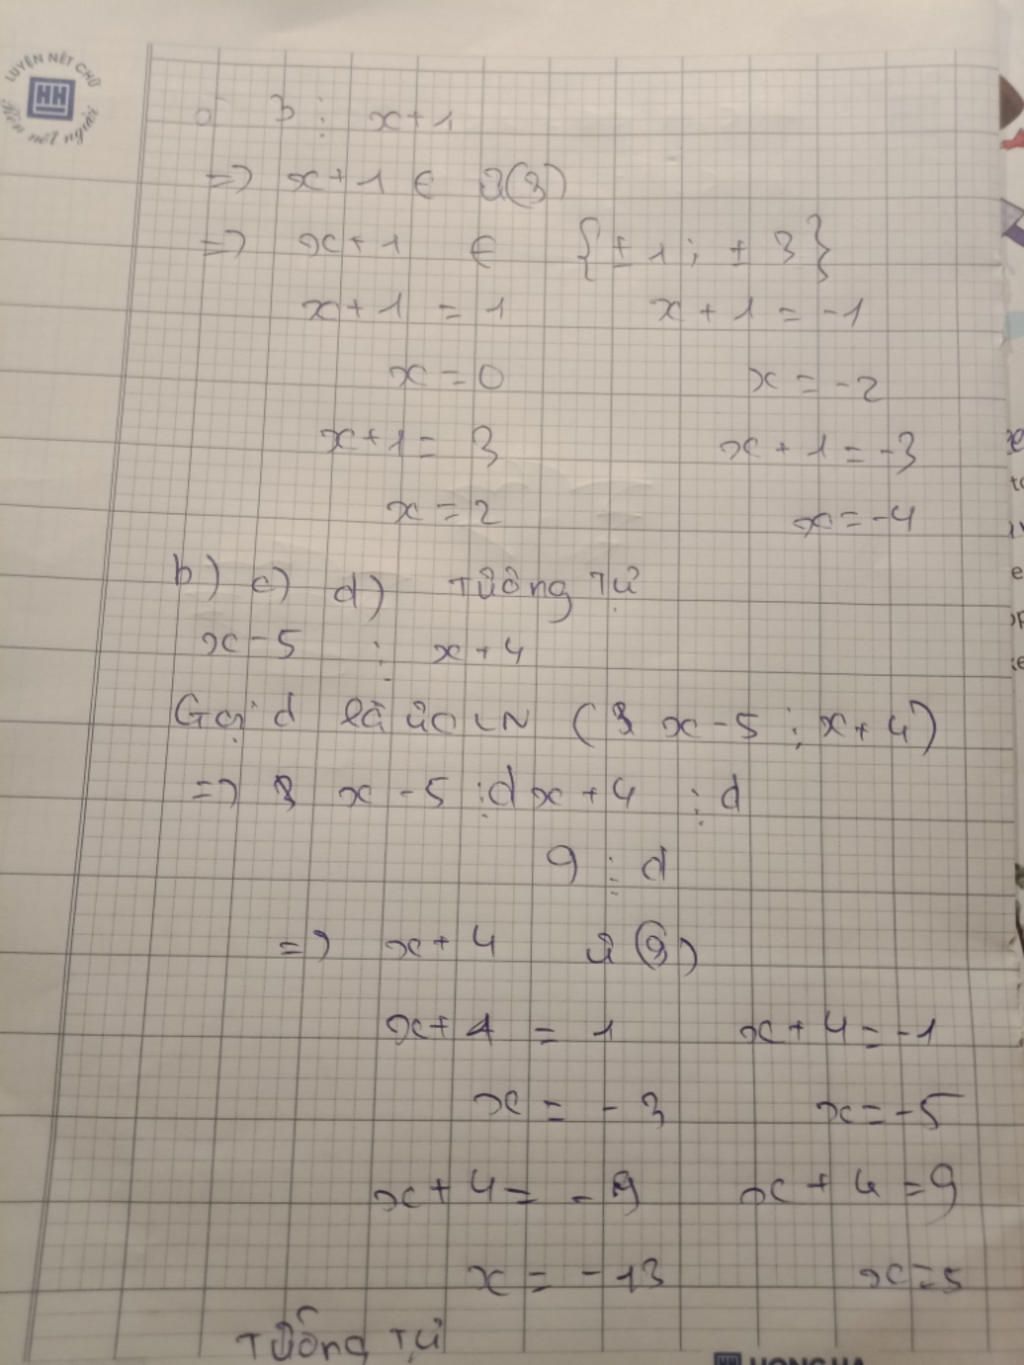 LUYỆN NÉT CHỮ
HH
Rèn nết người
a 3 ⋮ x+1
=> x+1 ∈ Ư(3)
=> x+1 ∈ {±1; ±3}
x+1 = 1 x+1 = -1
x = 0 x = -2
x+1 = 3 x+1 = -3
x = 2 x = -4
b) c) d) Tương Tự
x-5 ⋮ x+4
Gọi d là ƯCLN (x-5; x+4)
=> x-5 ⋮ d x+4 ⋮ d
9 ⋮ d
=> x+4 Ư(9)
x+4 = 1 x+4 = -1
x = -3 x = -5
x+4 = -9 x+4 = 9
x = -13 x = 5
Tương Tự
HONG HA